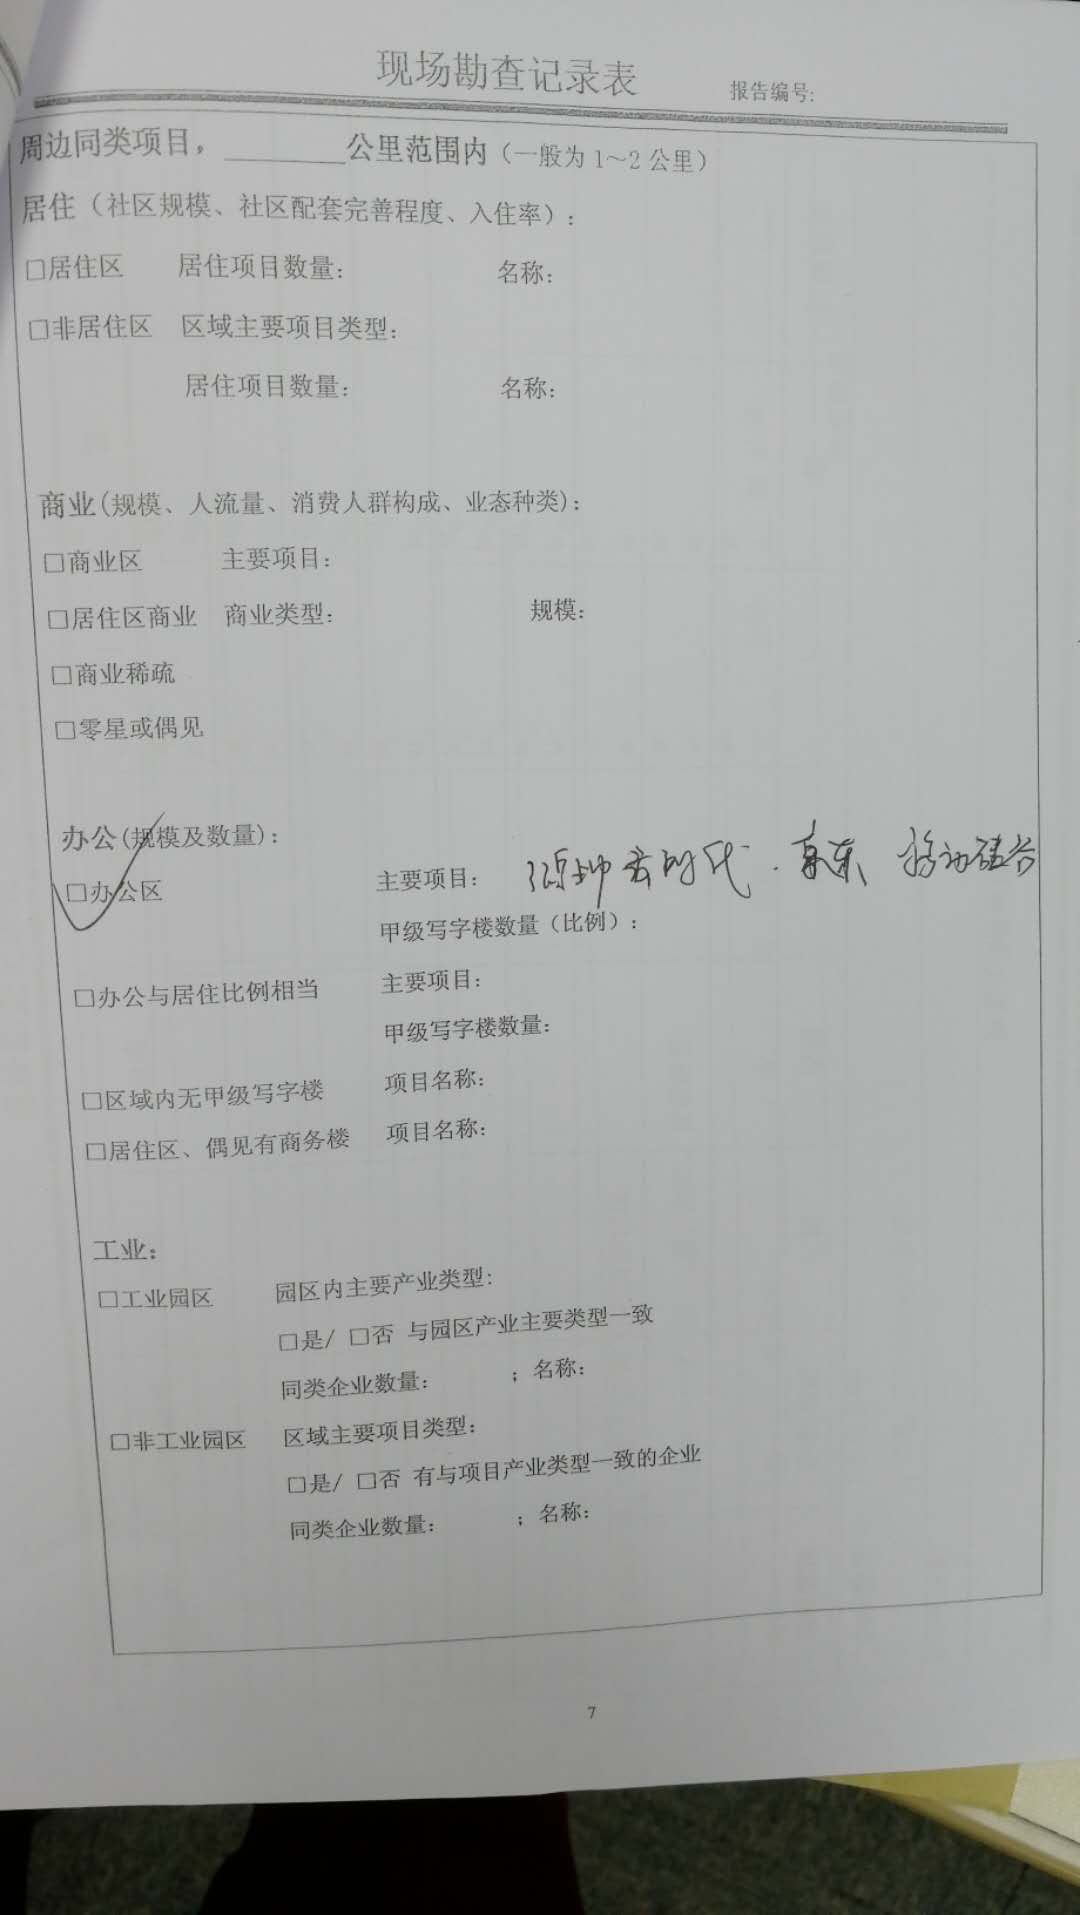 现场勘查记录表
报告编号:
周边同类项目，________公里范围内（一般为1～2公里）
居住（社区规模、社区配套完善程度、入住率）:
□居住区 居住项目数量: 名称:
□非居住区 区域主要项目类型:
居住项目数量: 名称:
商业(规模、人流量、消费人群构成、业态种类):
□商业区 主要项目:
□居住区商业 商业类型: 规模:
□商业稀疏
□零星或偶见
办公(规模及数量):
□办公区 主要项目: 云时代.京东、移动硅谷
甲级写字楼数量（比例）:
□办公与居住比例相当 主要项目:
甲级写字楼数量:
□区域内无甲级写字楼 项目名称:
□居住区、偶见有商务楼 项目名称:
工业:
□工业园区 园区内主要产业类型:
□是/ □否 与园区产业主要类型一致
同类企业数量: ；名称:
□非工业园区 区域主要项目类型:
□是/ □否 有与项目产业类型一致的企业
同类企业数量: ；名称:
7